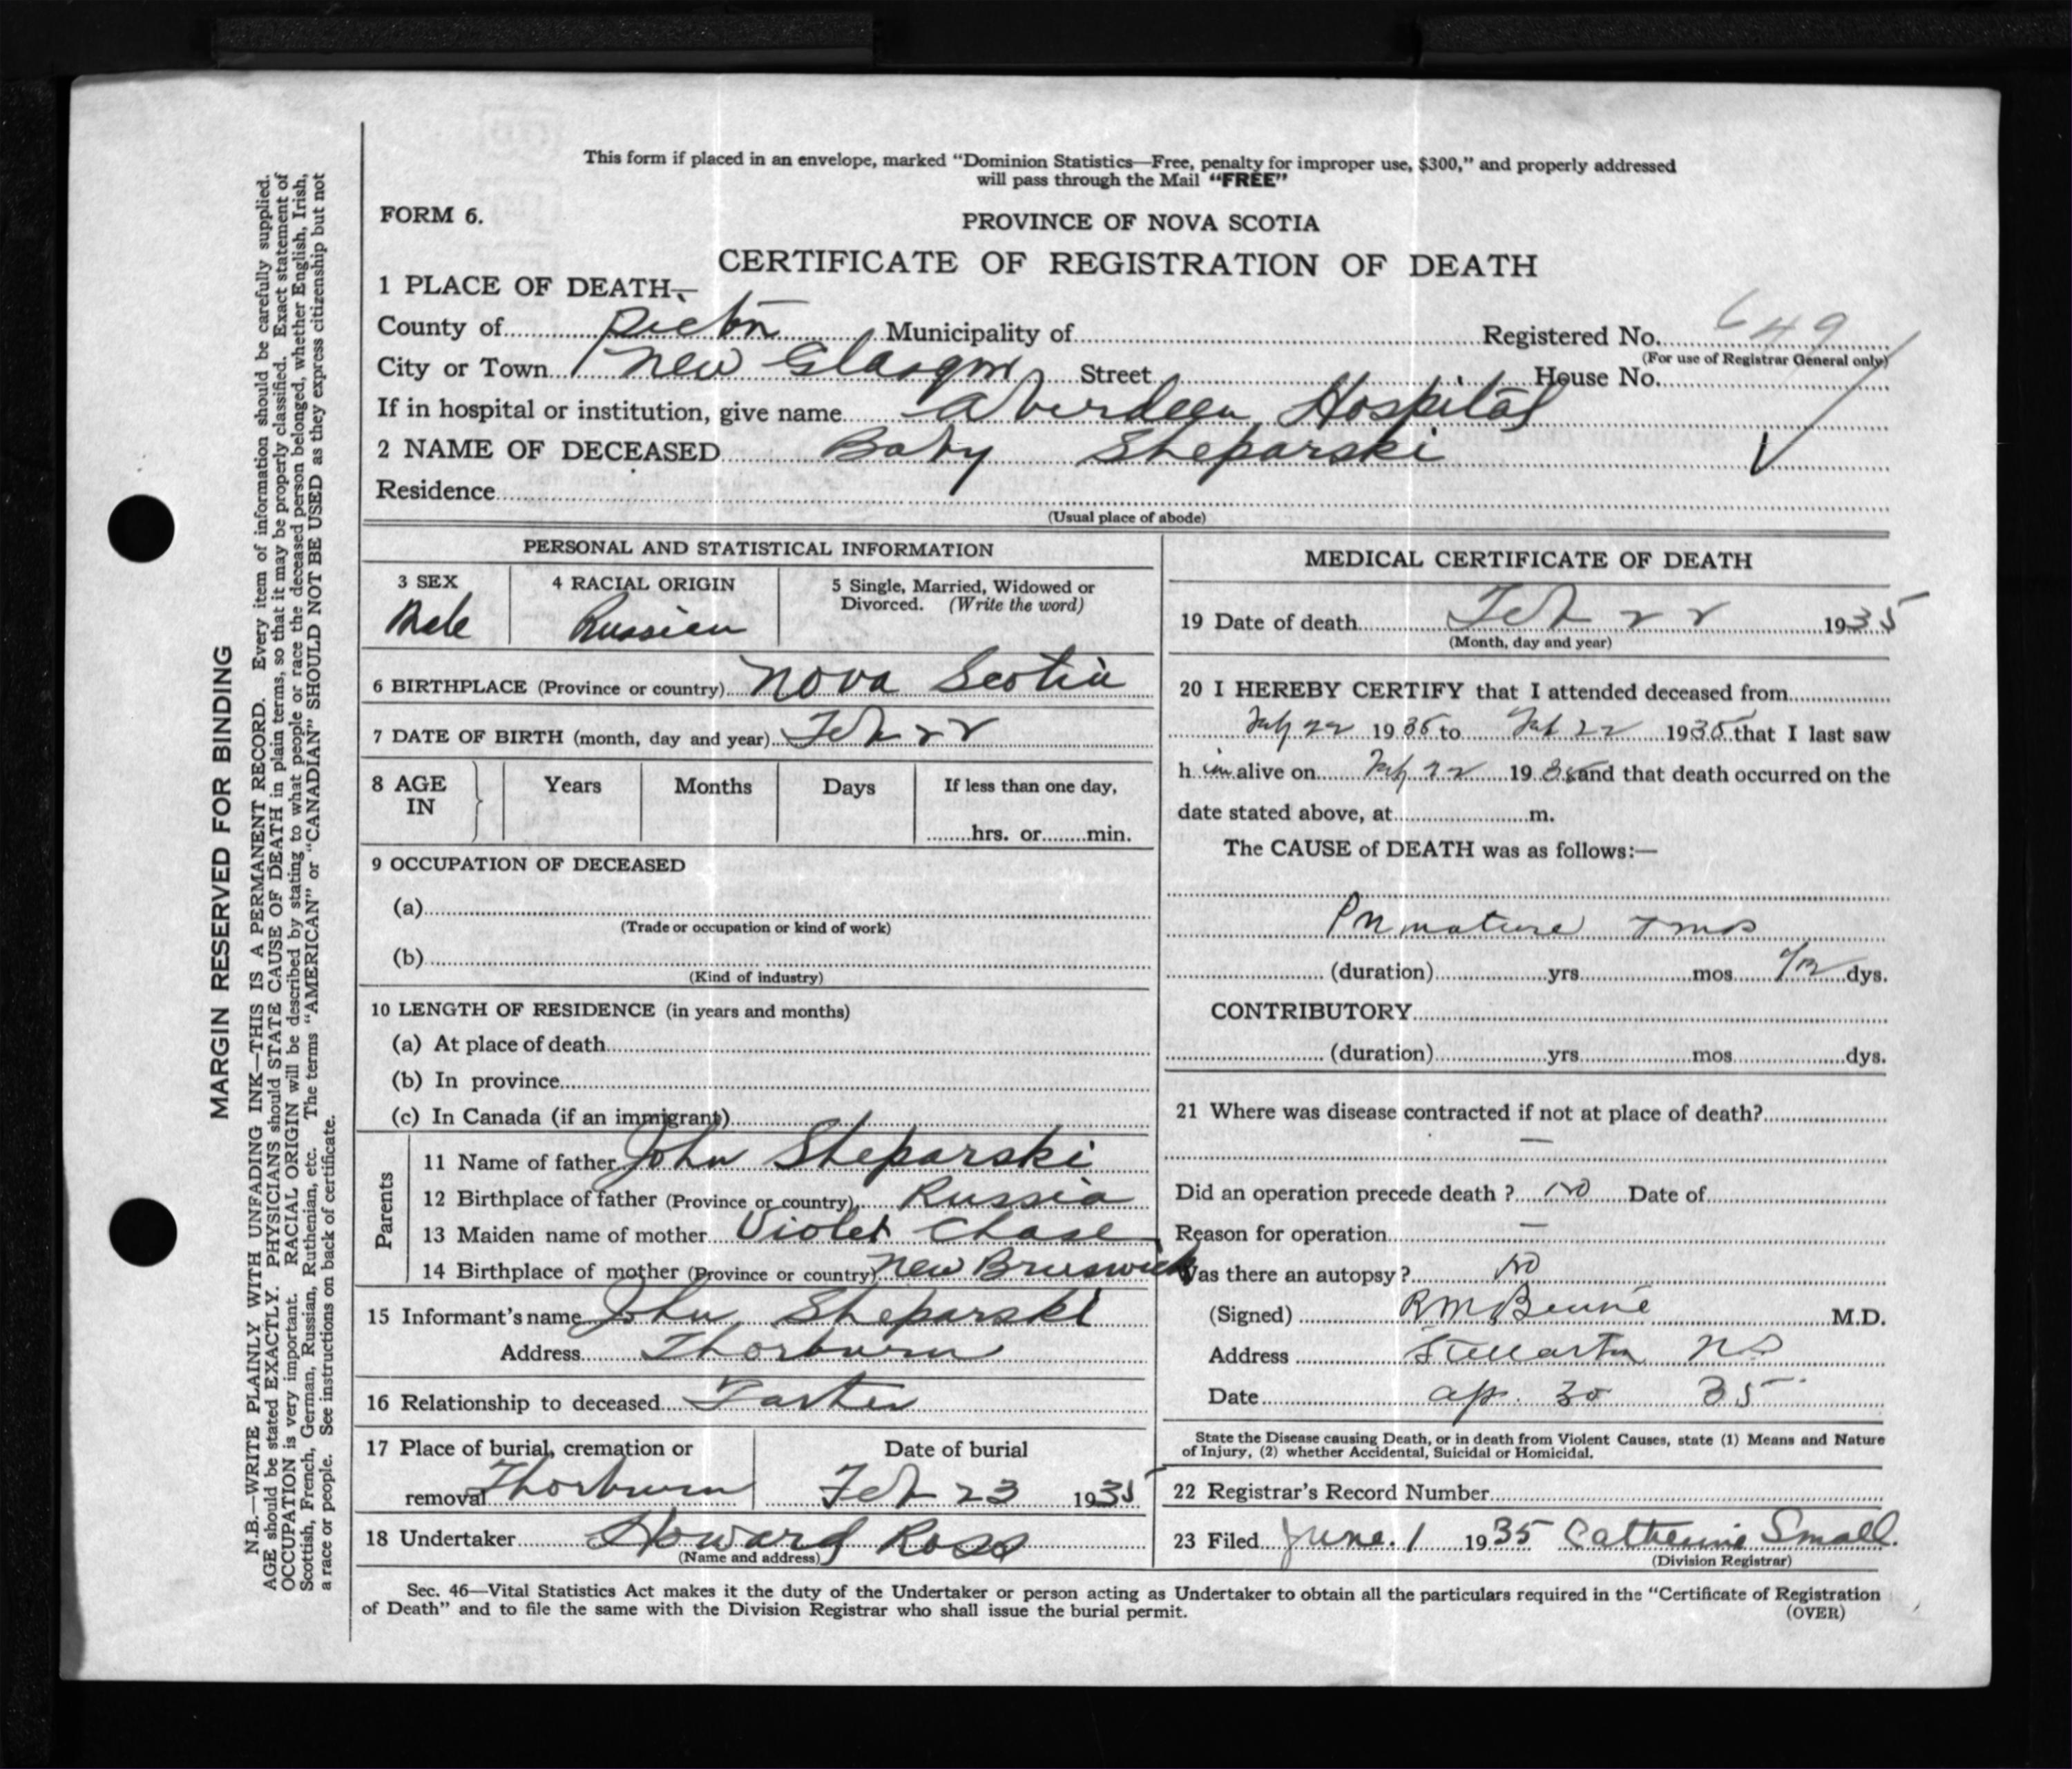 This form if placed in an envelope, marked “Dominion Statistics—Free, penalty for improper use, $300,” and properly addressed
will pass through the Mail “FREE”
FORM 6.
PROVINCE OF NOVA SCOTIA
CERTIFICATE OF REGISTRATION OF DEATH
1 PLACE OF DEATH—
County of Pictou Municipality of Registered No. 649
(For use of Registrar General only)
City or Town New Glasgow Street House No.
If in hospital or institution, give name Aberdeen Hospital
2 NAME OF DECEASED Baby Sheparski
Residence
(Usual place of abode)
PERSONAL AND STATISTICAL INFORMATION
3 SEX 4 RACIAL ORIGIN 5 Single, Married, Widowed or
Divorced. (Write the word)
Male Russian
6 BIRTHPLACE (Province or country) Nova Scotia
7 DATE OF BIRTH (month, day and year) Feb 22
8 AGE IN Years Months Days If less than one day,
hrs. or min.
9 OCCUPATION OF DECEASED
(a)
(Trade or occupation or kind of work)
(b)
(Kind of industry)
10 LENGTH OF RESIDENCE (in years and months)
(a) At place of death
(b) In province
(c) In Canada (if an immigrant)
Parents
11 Name of father John Sheparski
12 Birthplace of father (Province or country) Russia
13 Maiden name of mother Violet Chase
14 Birthplace of mother (Province or country) New Brunswick
15 Informant's name John Sheparski
Address Thorburn
16 Relationship to deceased
17 Place of burial, cremation or Date of burial
removal Thorburn Feb 23 1935
18 Undertaker Howard Ross
(Name and address)
MEDICAL CERTIFICATE OF DEATH
19 Date of death Feb 22 1935
(Month, day and year)
20 I HEREBY CERTIFY that I attended deceased from
Feb 22 1935 to Feb 22 1935 that I last saw
h im alive on Feb 22 1935 and that death occurred on the
date stated above, at m.
The CAUSE of DEATH was as follows:—
Premature 7 mos
(duration) yrs mos 1/12 dys.
CONTRIBUTORY
(duration) yrs mos dys.
21 Where was disease contracted if not at place of death?
—
Did an operation precede death ? no Date of
Reason for operation —
Was there an autopsy ? no
(Signed) M.D.
Address Stellarton NS
Date Ap. 30 35
State the Disease causing Death, or in death from Violent Causes, state (1) Means and Nature
of Injury, (2) whether Accidental, Suicidal or Homicidal.
22 Registrar's Record Number
23 Filed June. 1 1935 Catherine Small.
(Division Registrar)
Sec. 46—Vital Statistics Act makes it the duty of the Undertaker or person acting as Undertaker to obtain all the particulars required in the “Certificate of Registration
of Death” and to file the same with the Division Registrar who shall issue the burial permit.
(OVER)
MARGIN RESERVED FOR BINDING
N.B.—WRITE PLAINLY WITH UNFADING INK—THIS IS A PERMANENT RECORD. Every item of information should be carefully supplied.
AGE should be stated EXACTLY. PHYSICIANS should STATE CAUSE OF DEATH in plain terms, so that it may be properly classified. Exact statement of
OCCUPATION is very important. RACIAL ORIGIN will be described by stating to what people or race the deceased person belonged, whether English, Irish,
Scottish, French, German, Russian, Ruthenian, etc. The terms “AMERICAN” or “CANADIAN” SHOULD NOT BE USED as they express citizenship but not
a race or people. See instructions on back of certificate.